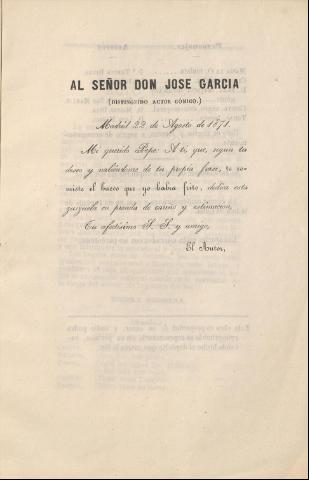 AL SEÑOR DON JOSE GARCIA
(DISTINGUIDO ACTOR CÓMICO.)
Madrid 22 de Agosto de 1871.
Mi querido Pepe: A ti, que, segun tu
deseo y valiéndome de tu propia frase, te co-
miste el huevo que yo habia frito, dedica esta
zarzuela en prenda de cariño y estimacion,
Tu afectísimo S. S. y amigo,
El Autor,